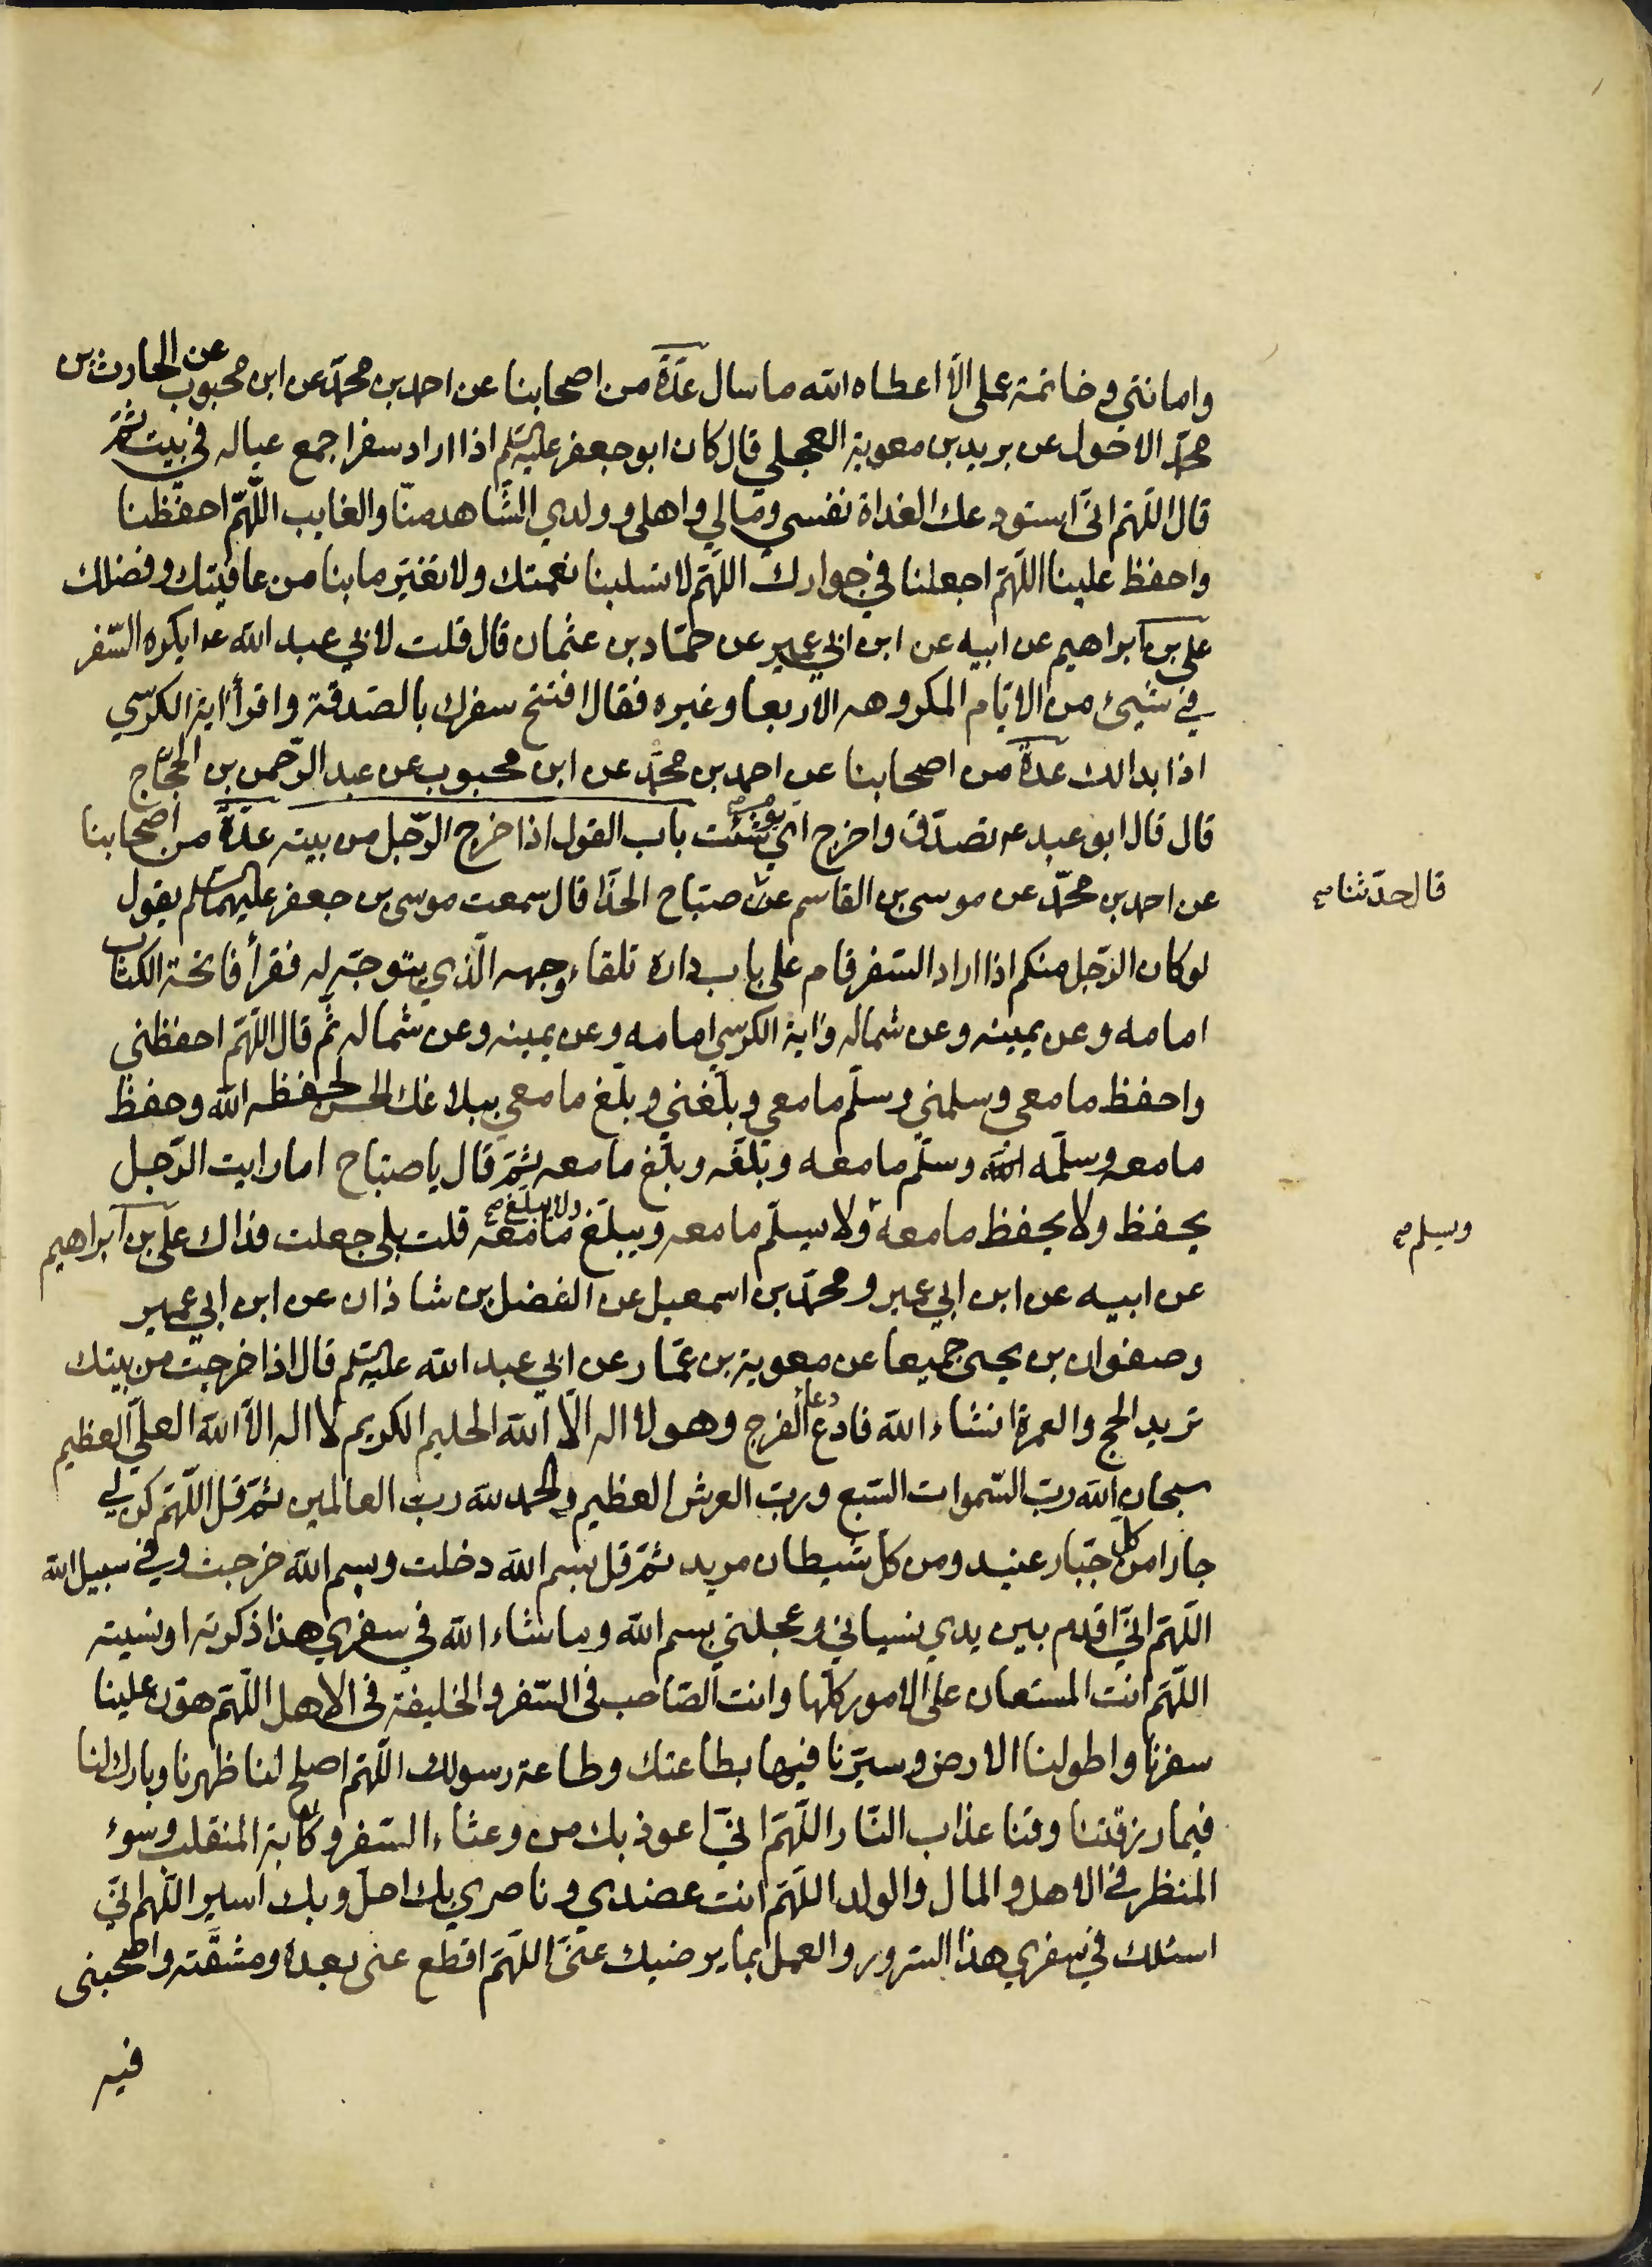 وامانتي وخاتمة عملي الا اعطاه الله ما سال عدة من اصحابنا عن احمد بن محمد عن ابن محبوب عن الحارث بن
محمد الاحول عن بريد بن معوية العجلي قال كان ابو جعفر عليه السلم اذا اراد سفرا جمع عياله في بيت ثم
قال اللهم اني استودعك الغداة نفسي ومالي واهلي وولدي الشاهد منا والغايب اللهم احفظنا
واحفظ علينا اللهم اجعلنا في جوارك اللهم لا تسلبنا نعمتك ولا تغير ما بنا من عافيتك وفضلك
علي بن ابراهيم عن ابيه عن ابن ابي عمير عن حماد بن عثمان قال قلت لابي عبد الله ع ايكره السفر
في شيئ من الايام المكروهه الاربعا وغيره فقال افتتح سفرك بالصدقة واقرأ اية الكرسي
اذا بدا لك عدة من اصحابنا عن احمد بن محمد عن ابن محبوب عن عبد الرحمن بن الحجاج
قال قال ابو عبد ع تصدق واخرج اي يوم شئت باب القول اذا خرج الرجل من بيته عدة من اصحابنا
عن احمد بن محمد عن موسى بن القاسم عن صباح الحذا قال سمعت موسى بن جعفر عليهما السلم يقول
قال حدثنا صح
لو كان الرجل منكم اذا اراد السفر قام على باب داره تلقاء وجهه الذي يتوجه له فقرأ فاتحة الكتاب
امامه وعن يمينه وعن شماله واية الكرسي امامه وعن يمينه وعن شماله ثم قال اللهم احفظني
واحفظ ما معي وسلمني وسلم ما معي وبلغني وبلغ ما معي ببلاغك الحسن لحفظه الله وحفظ
ما معه وسلمه الله وسلم ما معه وبلغه وبلغ ما معه ثم قال يا صباح اما رايت الرجل
يحفظ ولا يحفظ ما معه ولا يسلم ما معه ويبلغ ولا يبلغ صح ما معه قلت بلى جعلت فداك علي بن ابراهيم
ويسلم صح
عن ابيه عن ابن ابي عمير ومحمد بن اسمعيل عن الفضل بن شاذان عن ابن ابي عمير
وصفوان بن يحيى جميعا عن معوية بن عمار عن ابي عبد الله عليه السلم قال اذا خرجت من بيتك
تريد الحج والعمرة انشاء الله فادع دعاء الفرج وهو لا اله الا الله الحليم الكريم لا اله الا الله العلي العظيم
سبحان الله رب السموات السبع ورب العرش العظيم والحمد لله رب العالمين ثم قل اللهم كن لي
جارا من كل جبار عنيد ومن كل شيطان مريد ثم قل بسم الله دخلت وبسم الله خرجت وفي سبيل الله
اللهم اني اقدم بين يدي نسياني وعجلتي بسم الله وما شاء الله في سفري هذا ذكرته او نسيته
اللهم انت المستعان على الامور كلها وانت الصاحب في السفر والخليفة في الاهل اللهم هون علينا
سفرنا واطو لنا الارض وسيرنا فيها بطاعتك وطاعة رسولك اللهم اصلح لنا ظهرنا وبارك لنا
فيما رزقتنا وقنا عذاب النار اللهم اني اعوذ بك من وعثاء السفر وكابة المنقلب وسوء
المنظر في الاهل والمال والولد اللهم انت عضدي وناصري بك احل وبك اسير اللهم اني
اسئلك في سفري هذا السرور والعمل بما يرضيك عني اللهم اقطع عني بعده ومشقته واصحبني
فيه